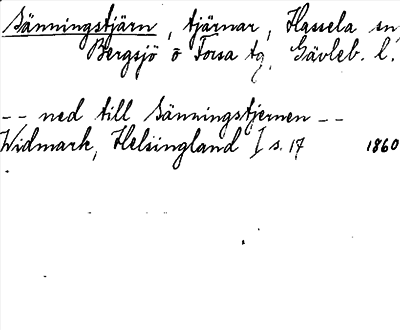 Sänningstjärn, tjärnar, Hassela sn,
Bergsjö o Forsa tg, Gävleb. l.
-- ned till Sänningstjernen --
Widmark, Helsingland I s. 17 1860